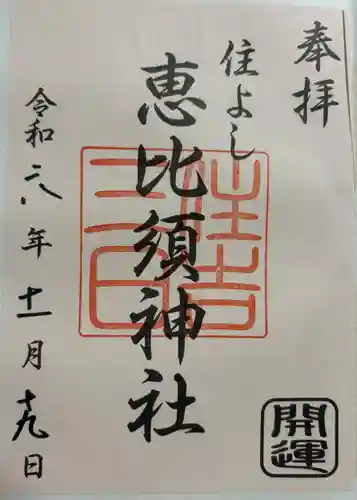 奉拝
住よし
恵比須神社
令和六年十一月十九日
住吉
開運